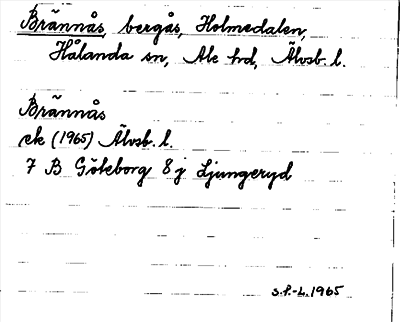 Brännås, bergås, Holmedalen,
Hålanda sn, Ale hd, Älvsb. l.
Brännås
ek (1965) Älvsb. l.
7 B Göteborg 8 j Ljungeryd
s.f.-L. 1965